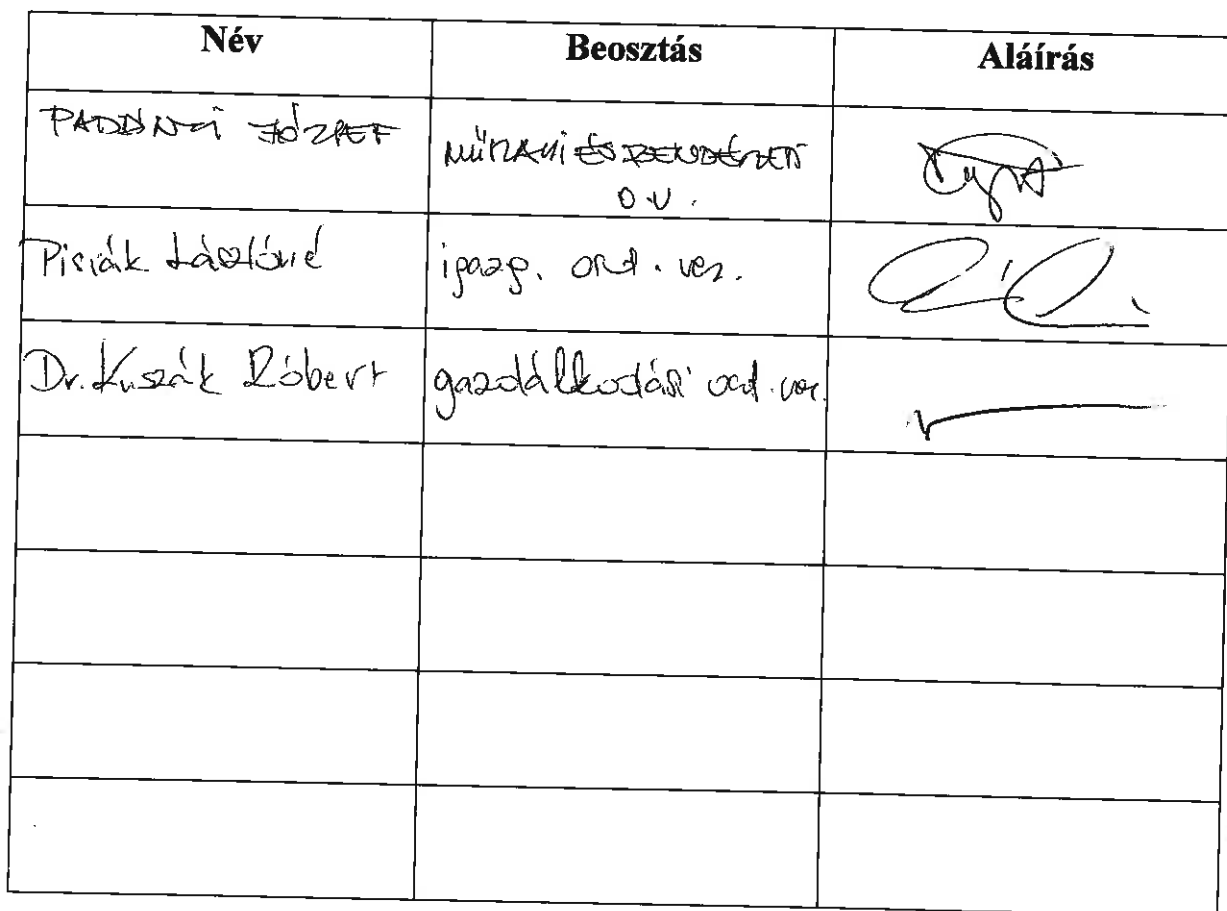 Név Beosztás Aláírás
JÓZSEF MŰSZAKI ÉS RENDÉSZETI
O.V.
Lászlóné igazg. oszt. vez.
Dr. Kuszák Róbert gazdálkodási oszt. vez.